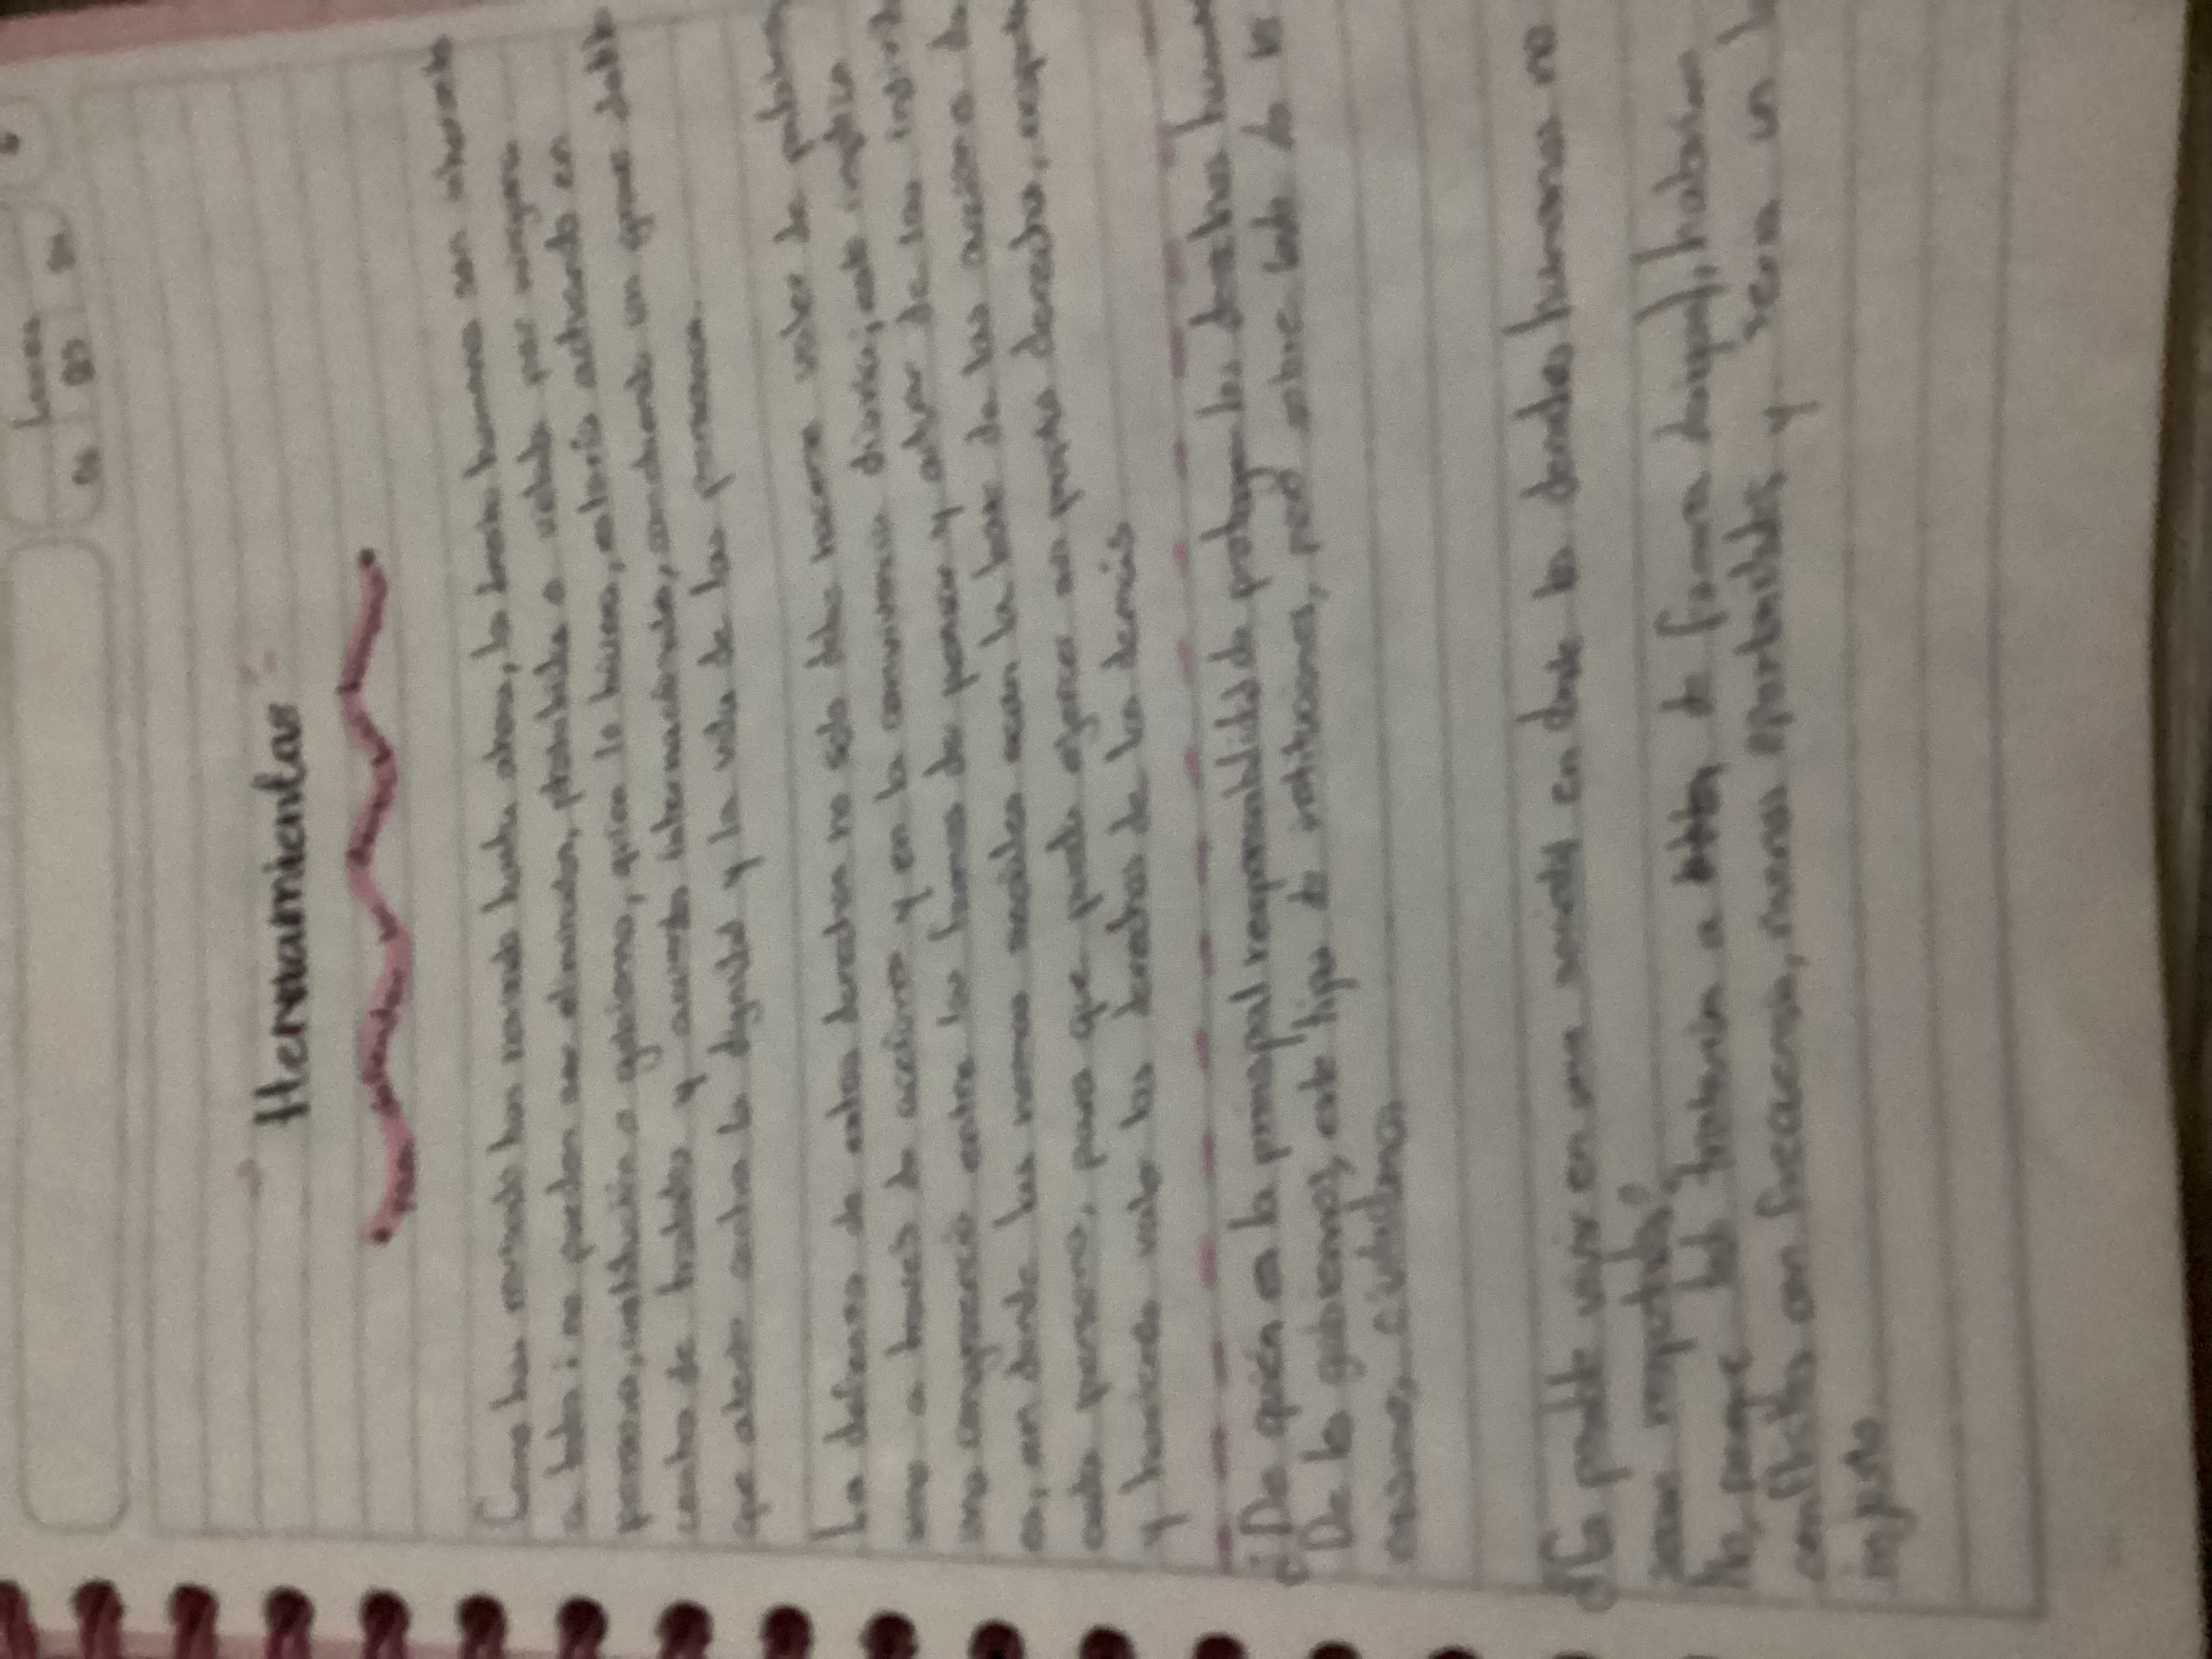 Lunes
Herramientas
Como has revisado hasta ahora, los derechos humanos son inherentes
a todos; no pueden ser eliminados, prohibidos o vetados por ninguna
persona, institución o gobierno, quien lo hiciera, estaría actuando en
contra de tratados y acuerdos internacionales, cometiendo un grave delito
que atenta contra la dignidad y la vida de las personas.
La defensa de estos derechos no solo debe hacerse valer de
sino a través de acciones y en la convivencia diaria; esto implica
una congruencia entre las formas de pensar y actuar de los
en donde las normas sociales sean la base de las acciones de
cada persona, para que pueda ejercer sus propios derechos,
y haciendo valer los derechos de los demás
¿De quién es la principal responsabilidad de proteger los derechos
De los gobiernos, este tipo de instituciones, pero sobre todo de
mismos ciudadanos
¿Se puede vivir en una sociedad en donde los derechos humanos no
sean respetados?
No, porque los tratarían a de forma desigual, habrían
conflictos con frecuencia, menos oportunidades y sería un
injusto